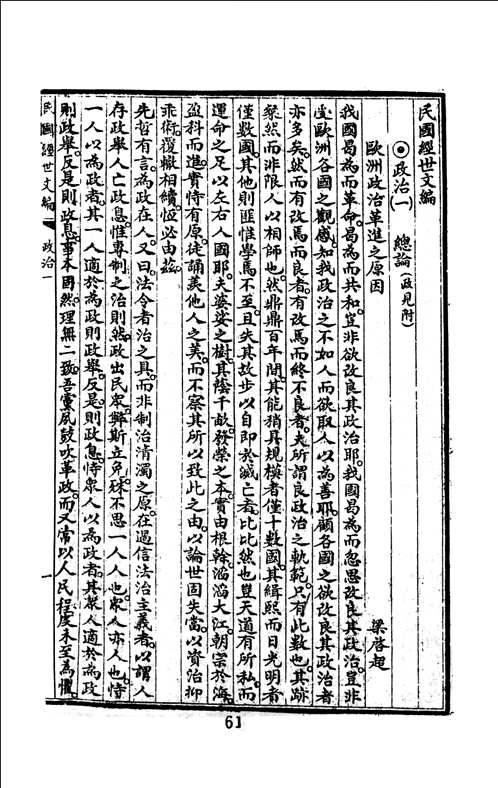 民國經世文編
◉政治(一)　總論(政見附)
歐洲政治革進之原因　梁啓超
我國曷爲而革命。曷爲而共和。豈非欲改良其政治耶。我國曷爲而忽思改良其政治。豈非
歐洲各國之觀感。知我政治之不如人而欲取人以爲善耶。顧各國之欲改良其政治者
亦多矣。然而有改焉而良者。有改焉而終不良者。夫所謂良政治之軌範。只有此數也。其跡
粲然而非限人以相師也。然鼎鼎百年間。其能稍具規模者僅十數國。其緝熙而日光明者
僅數國。其他則匪惟學焉不至。且失其故步以自即於滅亡者。比比然也。豈天道有所私。而
運命之足以左右人國耶。夫婆娑之樹。其蔭千畝。發榮之本。實由根榦。滔滔大江。朝宗於海。
盈科而進。實恃有原。徒誦羨他人之美。而不察其所以致此之由。以論世固失當。以資治抑
乖術。覆轍相續。恆必由茲。
先哲有言。爲政在人。又曰。法令者治之具。而非制治清濁之原。在過信法治主義者。以謂人
存政舉人亡政息。惟專制之治則然。政出民衆。弊斯立免。殊不思一人人也。衆人亦人也。恃
一人以爲政者。其一人適於爲政則政舉。反是則政息。恃衆人以爲政者。其衆人適於爲政
則政舉。反是則政息。事本固然。理無二致。吾黨夙鼓吹革政。而又常以人民程度未至爲懼。
民國經世文編　政治一　一
61